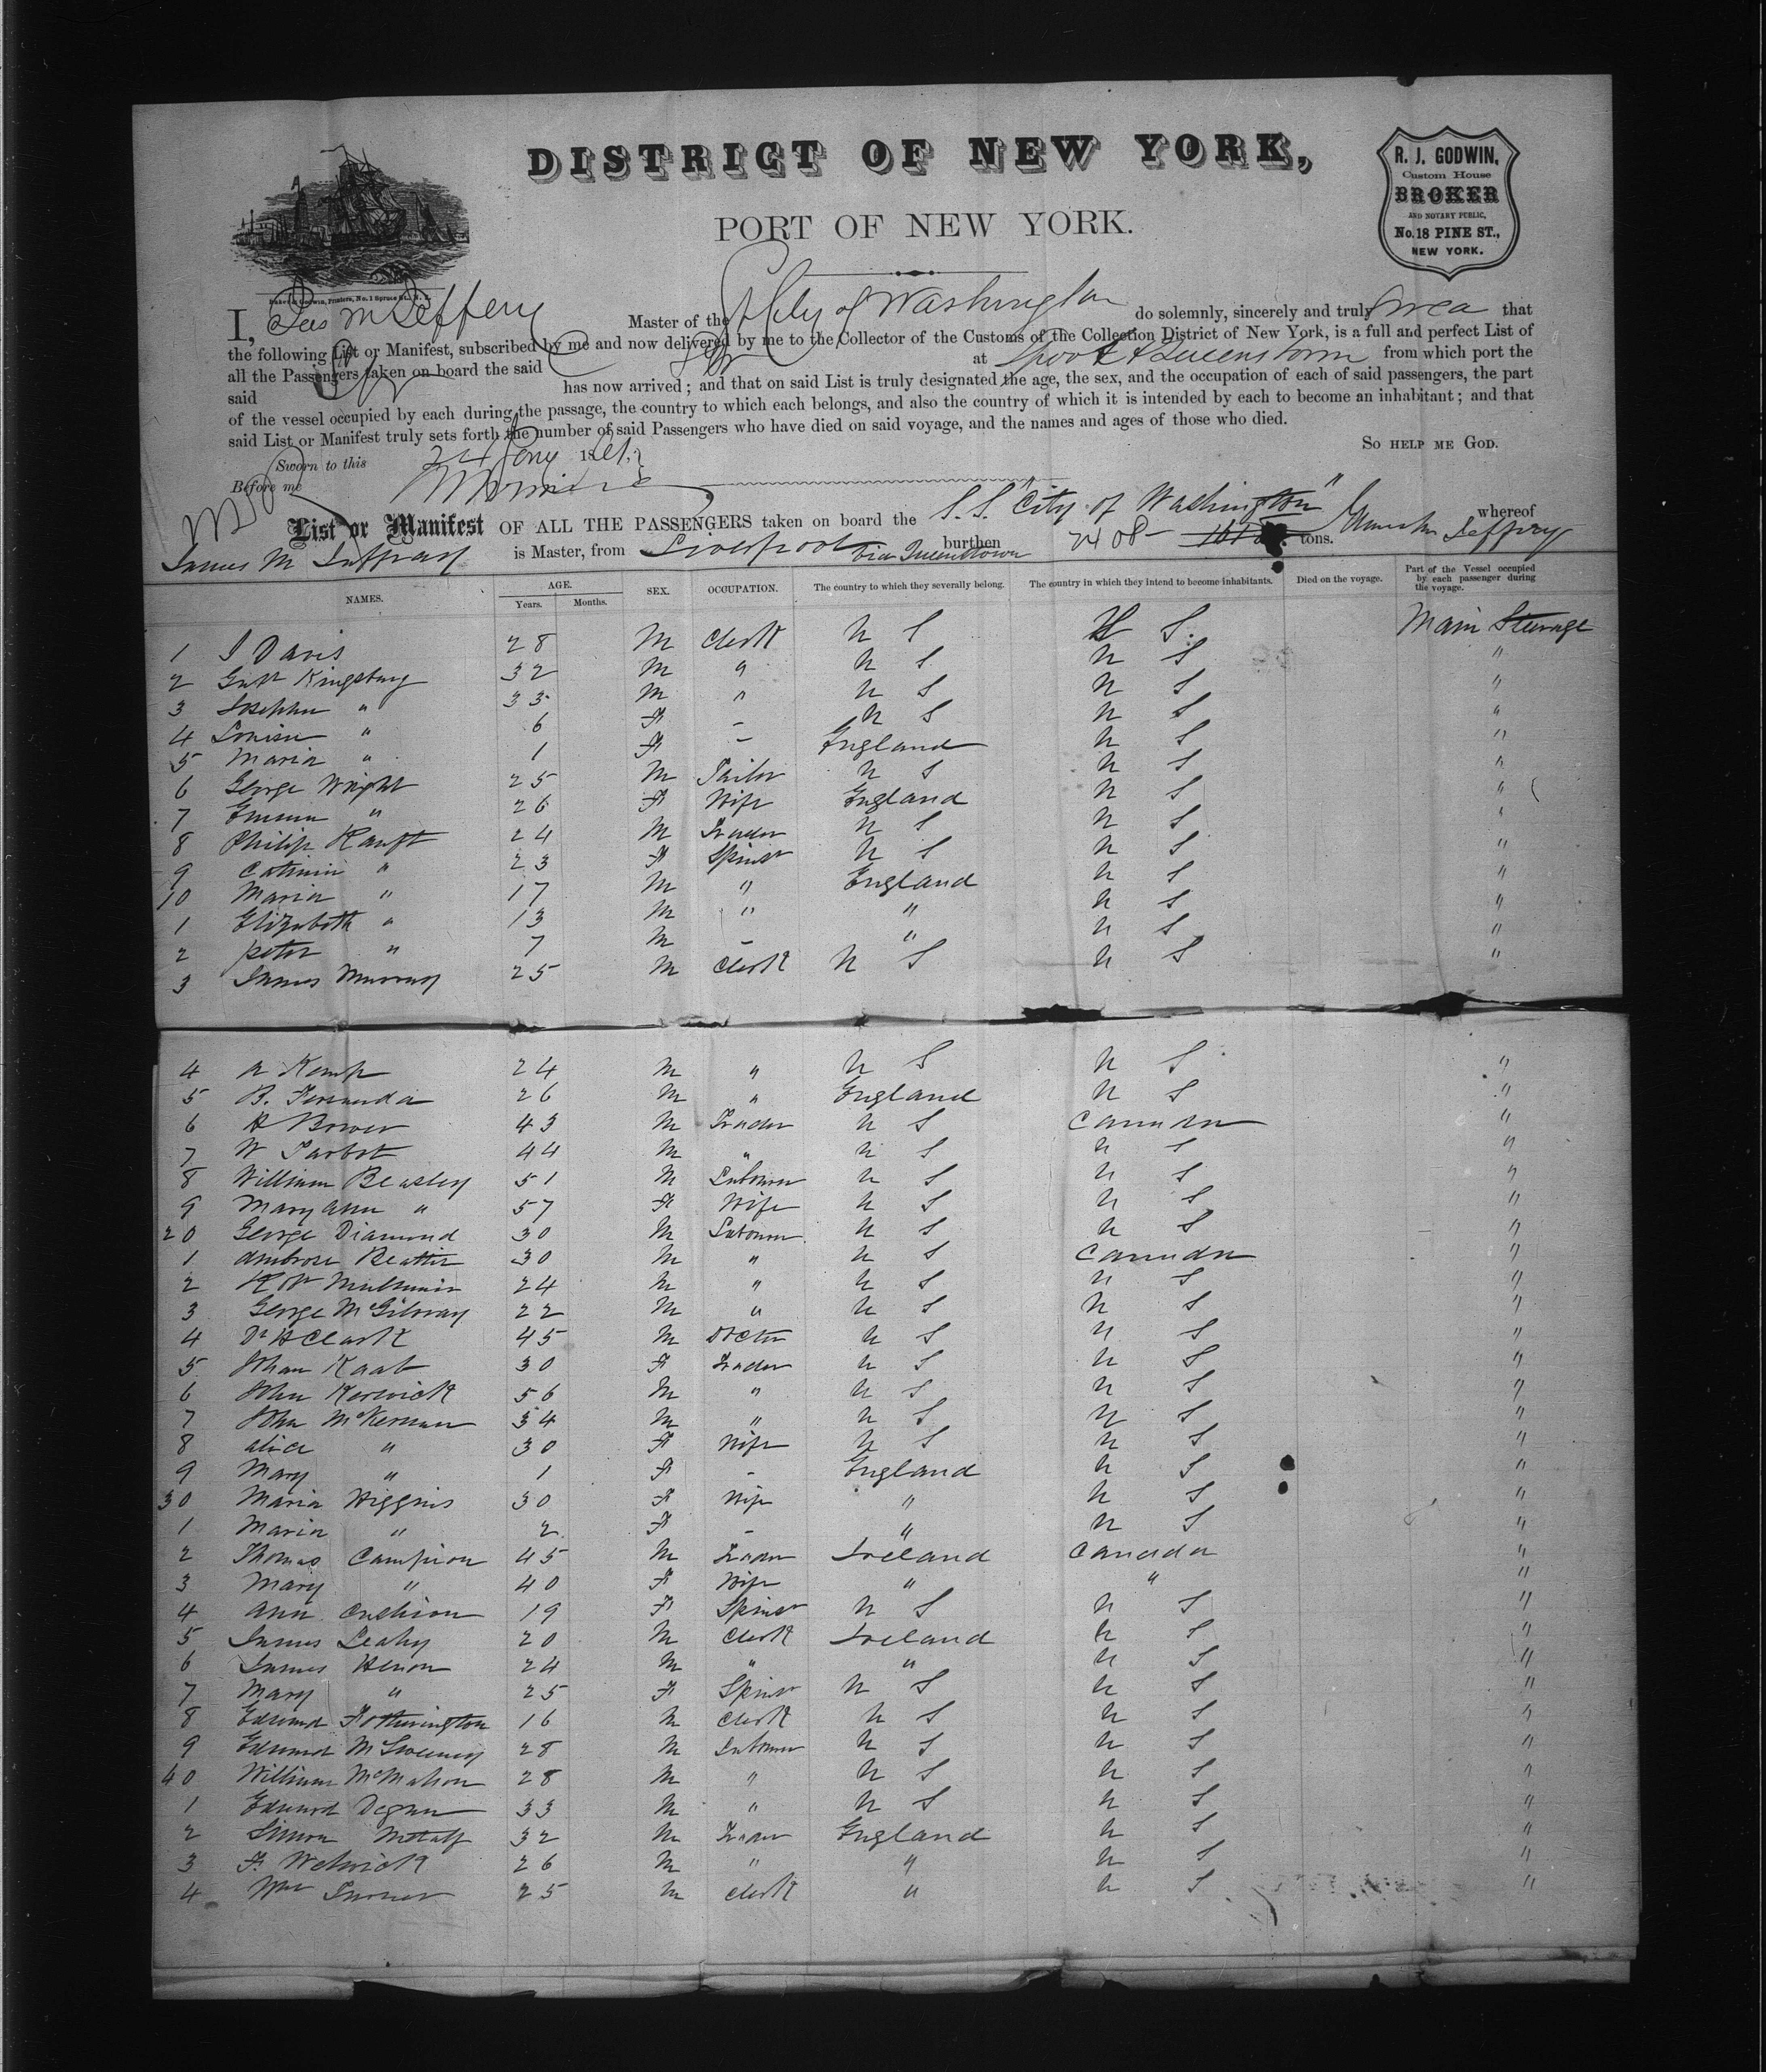 DISTRICT OF NEW YORK,
PORT OF NEW YORK.
R. J. GODWIN,
Custom House
BROKER
AND NOTARY PUBLIC,
No. 18 PINE ST.,
NEW YORK.
Baker & Godwin, Printers, No. 1 Spruce St., N. Y.
I, Jas M Jeffery Master of the SS City of Washington do solemnly, sincerely and truly swea that
the following List or Manifest, subscribed by me and now delivered by me to the Collector of the Customs of the Collection District of New York, is a full and perfect List of
all the Passengers taken on board the said at Lpool & Queenstown from which port the
said has now arrived; and that on said List is truly designated the age, the sex, and the occupation of each of said passengers, the part
of the vessel occupied by each during the passage, the country to which each belongs, and also the country of which it is intended by each to become an inhabitant; and that
said List or Manifest truly sets forth the number of said Passengers who have died on said voyage, and the names and ages of those who died.
SO HELP ME GOD.
Sworn to this 24 Jany 18
Before me
List or Manifest OF ALL THE PASSENGERS taken on board the S.S. "City of Washington" whereof
James M Jeffray is Master, from Liverpool via Queenstown burthen 2408 tons.
NAMES. AGE. Years. Months. SEX. OCCUPATION. The country to which they severally belong. The country in which they intend to become inhabitants. Died on the voyage. Part of the Vessel occupied by each passenger during the voyage.
1 J Davis 28 M Clerk U S U S Main Steerage
2 Gust Kingsbury 32 M " U S U S "
3 Josephu " 33 M " U S U S "
4 Louisa " 6 F - U S U S "
5 Maria " 1 F - England U S "
6 George Wright 25 M Tailor U S U S "
7 Emma " 26 F Wife England U S "
8 Philip Kauft 24 M Trader U S U S "
9 Catinin " 23 F Spinsr U S U S "
10 Maria " 17 M " England U S "
1 Elizabeth " 13 M " " U S "
2 peter " 7 M - " U S "
3 James Murray 25 M Clerk U S U S "
4 A Kemp 24 M " U S U S "
5 B. Fernanda 26 M " England U S "
6 H Bower 43 M Trader U S Canada "
7 W Tarbot 44 M " U S U S "
8 William Beasley 51 M Labourer U S U S "
9 Mary Ann " 57 F Wife U S U S "
20 George Diamond 30 M Labourer U S U S "
1 Ambrose Beattie 30 M " U S Canada "
2 Robt 24 M " U S U S "
3 George McGilvray 22 M " U S U S "
4 Dr H Clark 45 M Doctor U S U S "
5 Johan Kaab 30 F Trader U S U S "
6 John Kerwick 56 M " U S U S "
7 John McKernan 34 M " U S U S "
8 Alice " 30 F Wife U S U S "
9 Mary " 1 F - England U S "
30 Maria Higgins 30 F Wife " U S "
1 Maria " 2 F - " U S "
2 Thomas Campion 45 M Trader Ireland Canada "
3 Mary " 40 F Wife " " "
4 Ann Cushion 19 F Spinsr U S U S "
5 James Leahy 20 M Clerk Ireland U S "
6 James Heron 24 M " " U S "
7 Mary " 25 F Spinsr U S U S "
8 Edward Fotherington 16 M Clerk U S U S "
9 Edward McSweeney 28 M Labourer U S U S "
40 William McMahon 28 M " U S U S "
1 Edward Degnan 33 M " U S U S "
2 Simon Metcalf 32 M Trader England U S "
3 F. Welwick 26 M " " U S "
4 Wm Turner 25 M Clerk " U S "